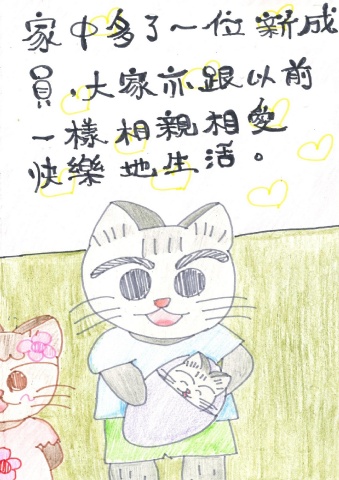 家中多了一位新成
員，大家亦跟以前
一樣相親相愛
快樂地生活。